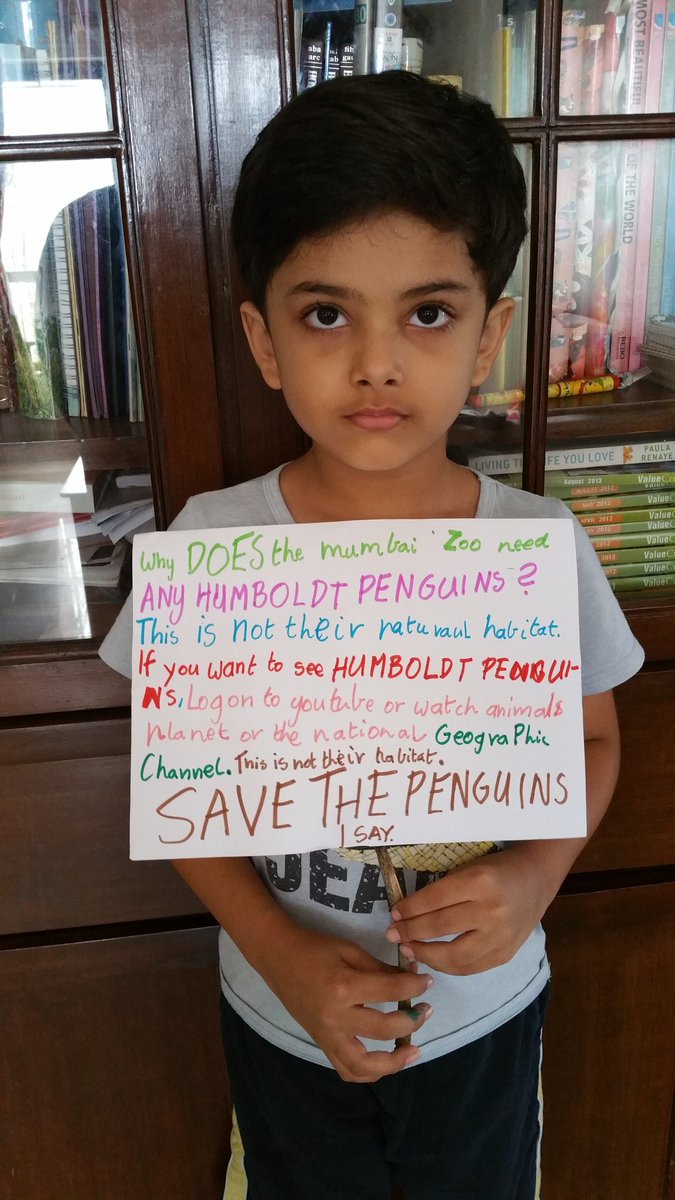 Why DOES the mumbai Zoo need
ANY HUMBOLDT PENGUINS?
This is not their naturaul habitat.
If you want to see HUMBOLDT PENGUI-
NS, Log on to youtube or watch animals
planet or the national Geographic
Channel. This is not their habitat.
SAVE THE PENGUINS
I SAY.
JEA
MOST BEAUTIFUL
OF THE WORLD
LIVING THE LIFE YOU LOVE PAULA RENAYE
August 2013 Value
AUGUST 2012 Value
MAY 2012 Value
APRIL 2012 Value